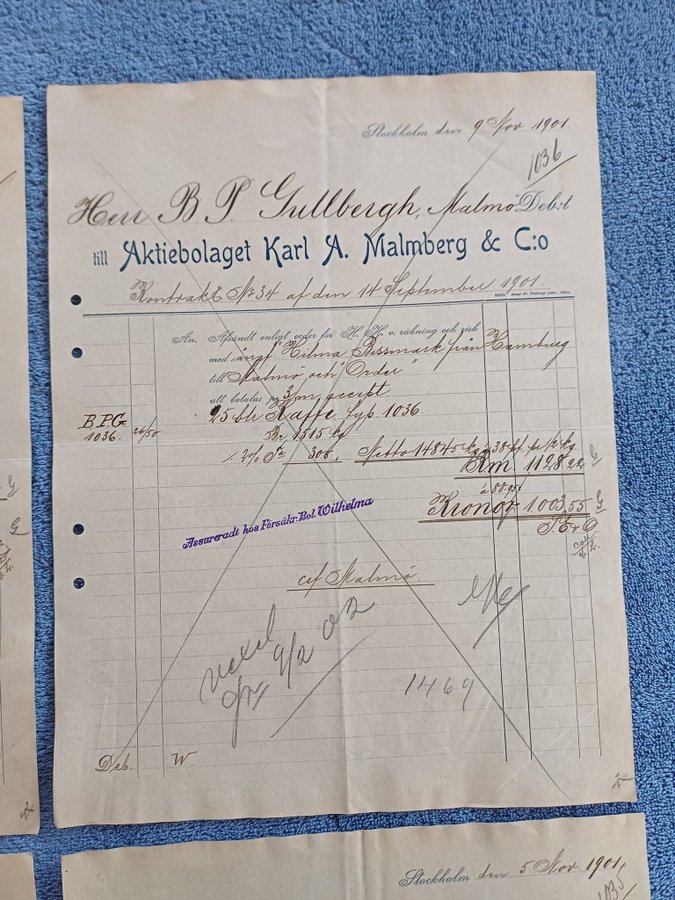 Stockholm den 9 Nov 1901.
1036
Herr B P Gullbergh, Malmö Deb:t
till Aktiebolaget Karl A. Malmberg & C:o
Kontrakt No 34 af den 14 September 1901.
An. Afsändt enligt order för H. H. v. räkning och risk
med ångf "Hilma Bissmark från Hamburg
till Malmö och "Order"
att betalas pr 3 m. accept
B.P.G. 25 blr Kaffe typ. 1036.
1036. 26/50 Br 1515 kg
Netto 1484 à 38 pf pr ½ kg
Rm 1128.22 G
Kronor 1003,55 G
S.E.&O
Assureradt hos Försäkr. Bol. Wilhelma
cif Malmö
Vexel
9/2 02
1469
Deb. W.
Stockholm den 5 Nov 1901.
1035
G
G